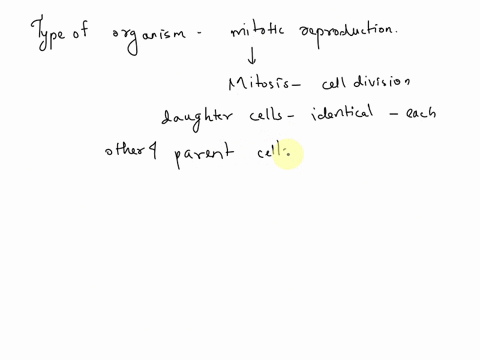 Type of organism - mitotic reproduction.
↓
Mitosis - cell division
daughter cells - identical - each
other & parent cell.